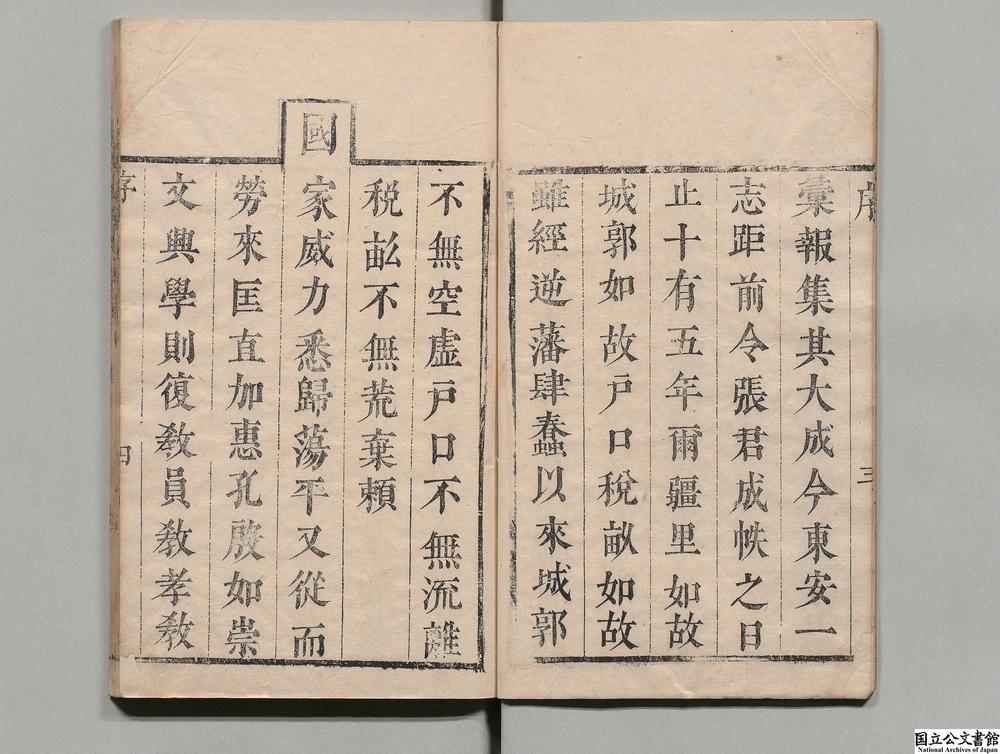 序
三
彙報集其大成今東安一
志距前令張君成帙之日
止十有五年爾疆里如故
城郭如故户口稅畝如故
雖經逆藩肆蠢以來城郭
不無空虛戶口不無流離
税畝不無荒棄賴
國家威力悉歸蕩平又從而
勞來匡直加惠孔殷如崇
文興學則復教員教孝教
序
四
国立公文書館
National Archives of Japan